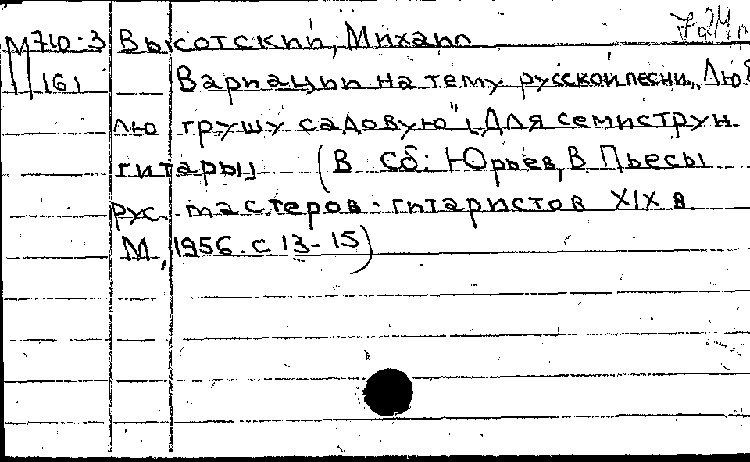 М710-3 Высотский, Михаил
161 Вариации на тему русской песни „Люб
лю грушу садовую“, Для семиструн.
гитары (В сб: Юрьев, В Пьесы
рус. мастеров-гитаристов XIX в.
М, 1956. с 13-15)